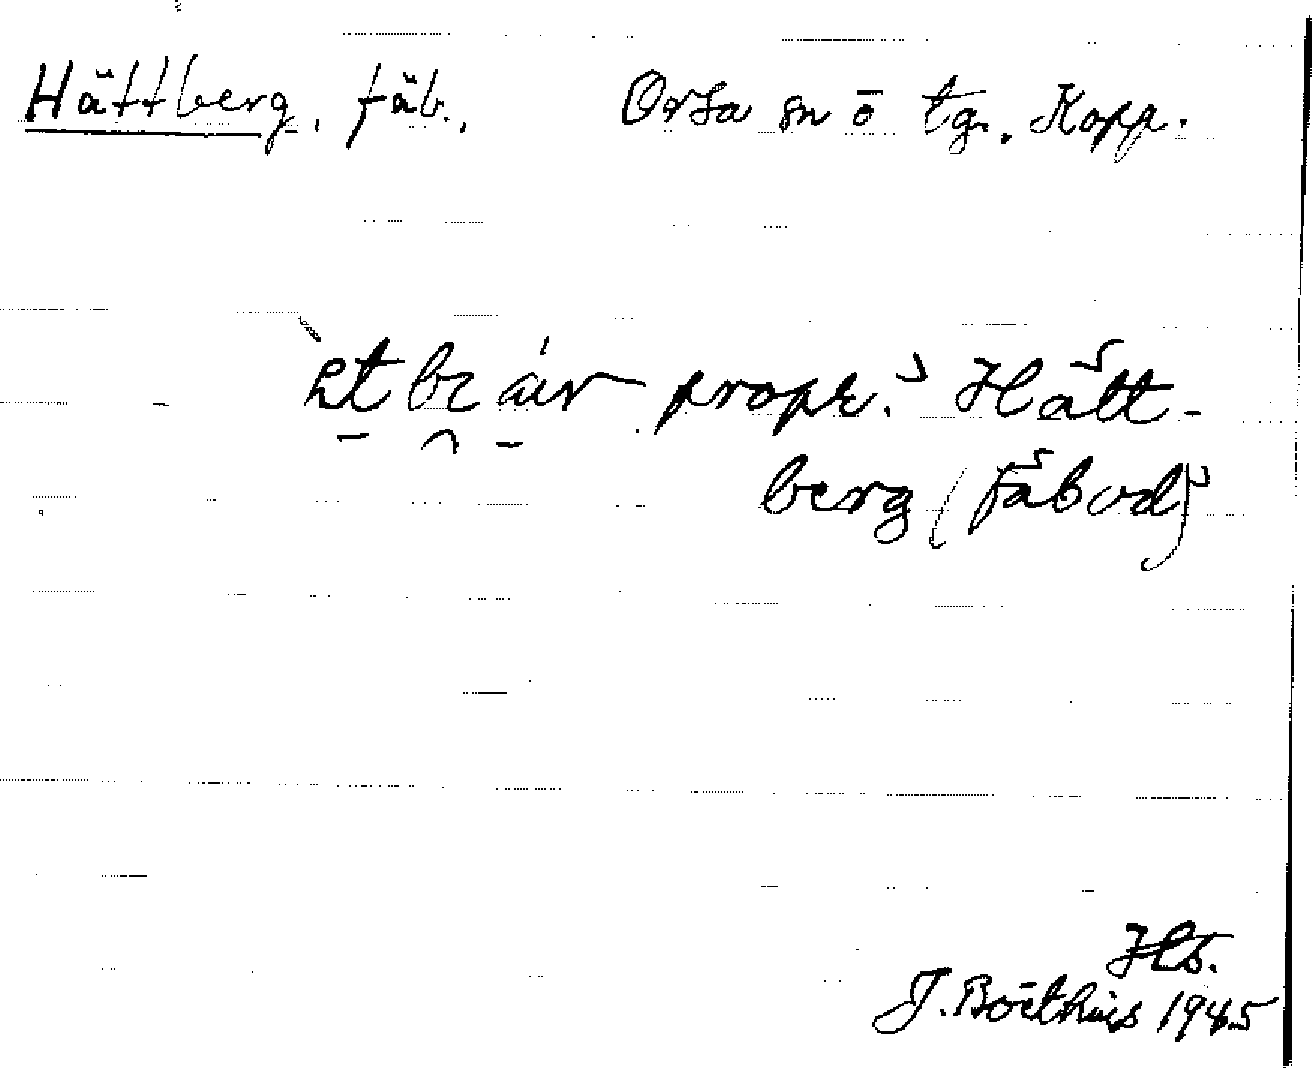 Hättberg, fäb., Orsa sn o tg. Kopp.
propr. Hätt-
berg (fäbod)
Hs.
J. Boëthius 1945